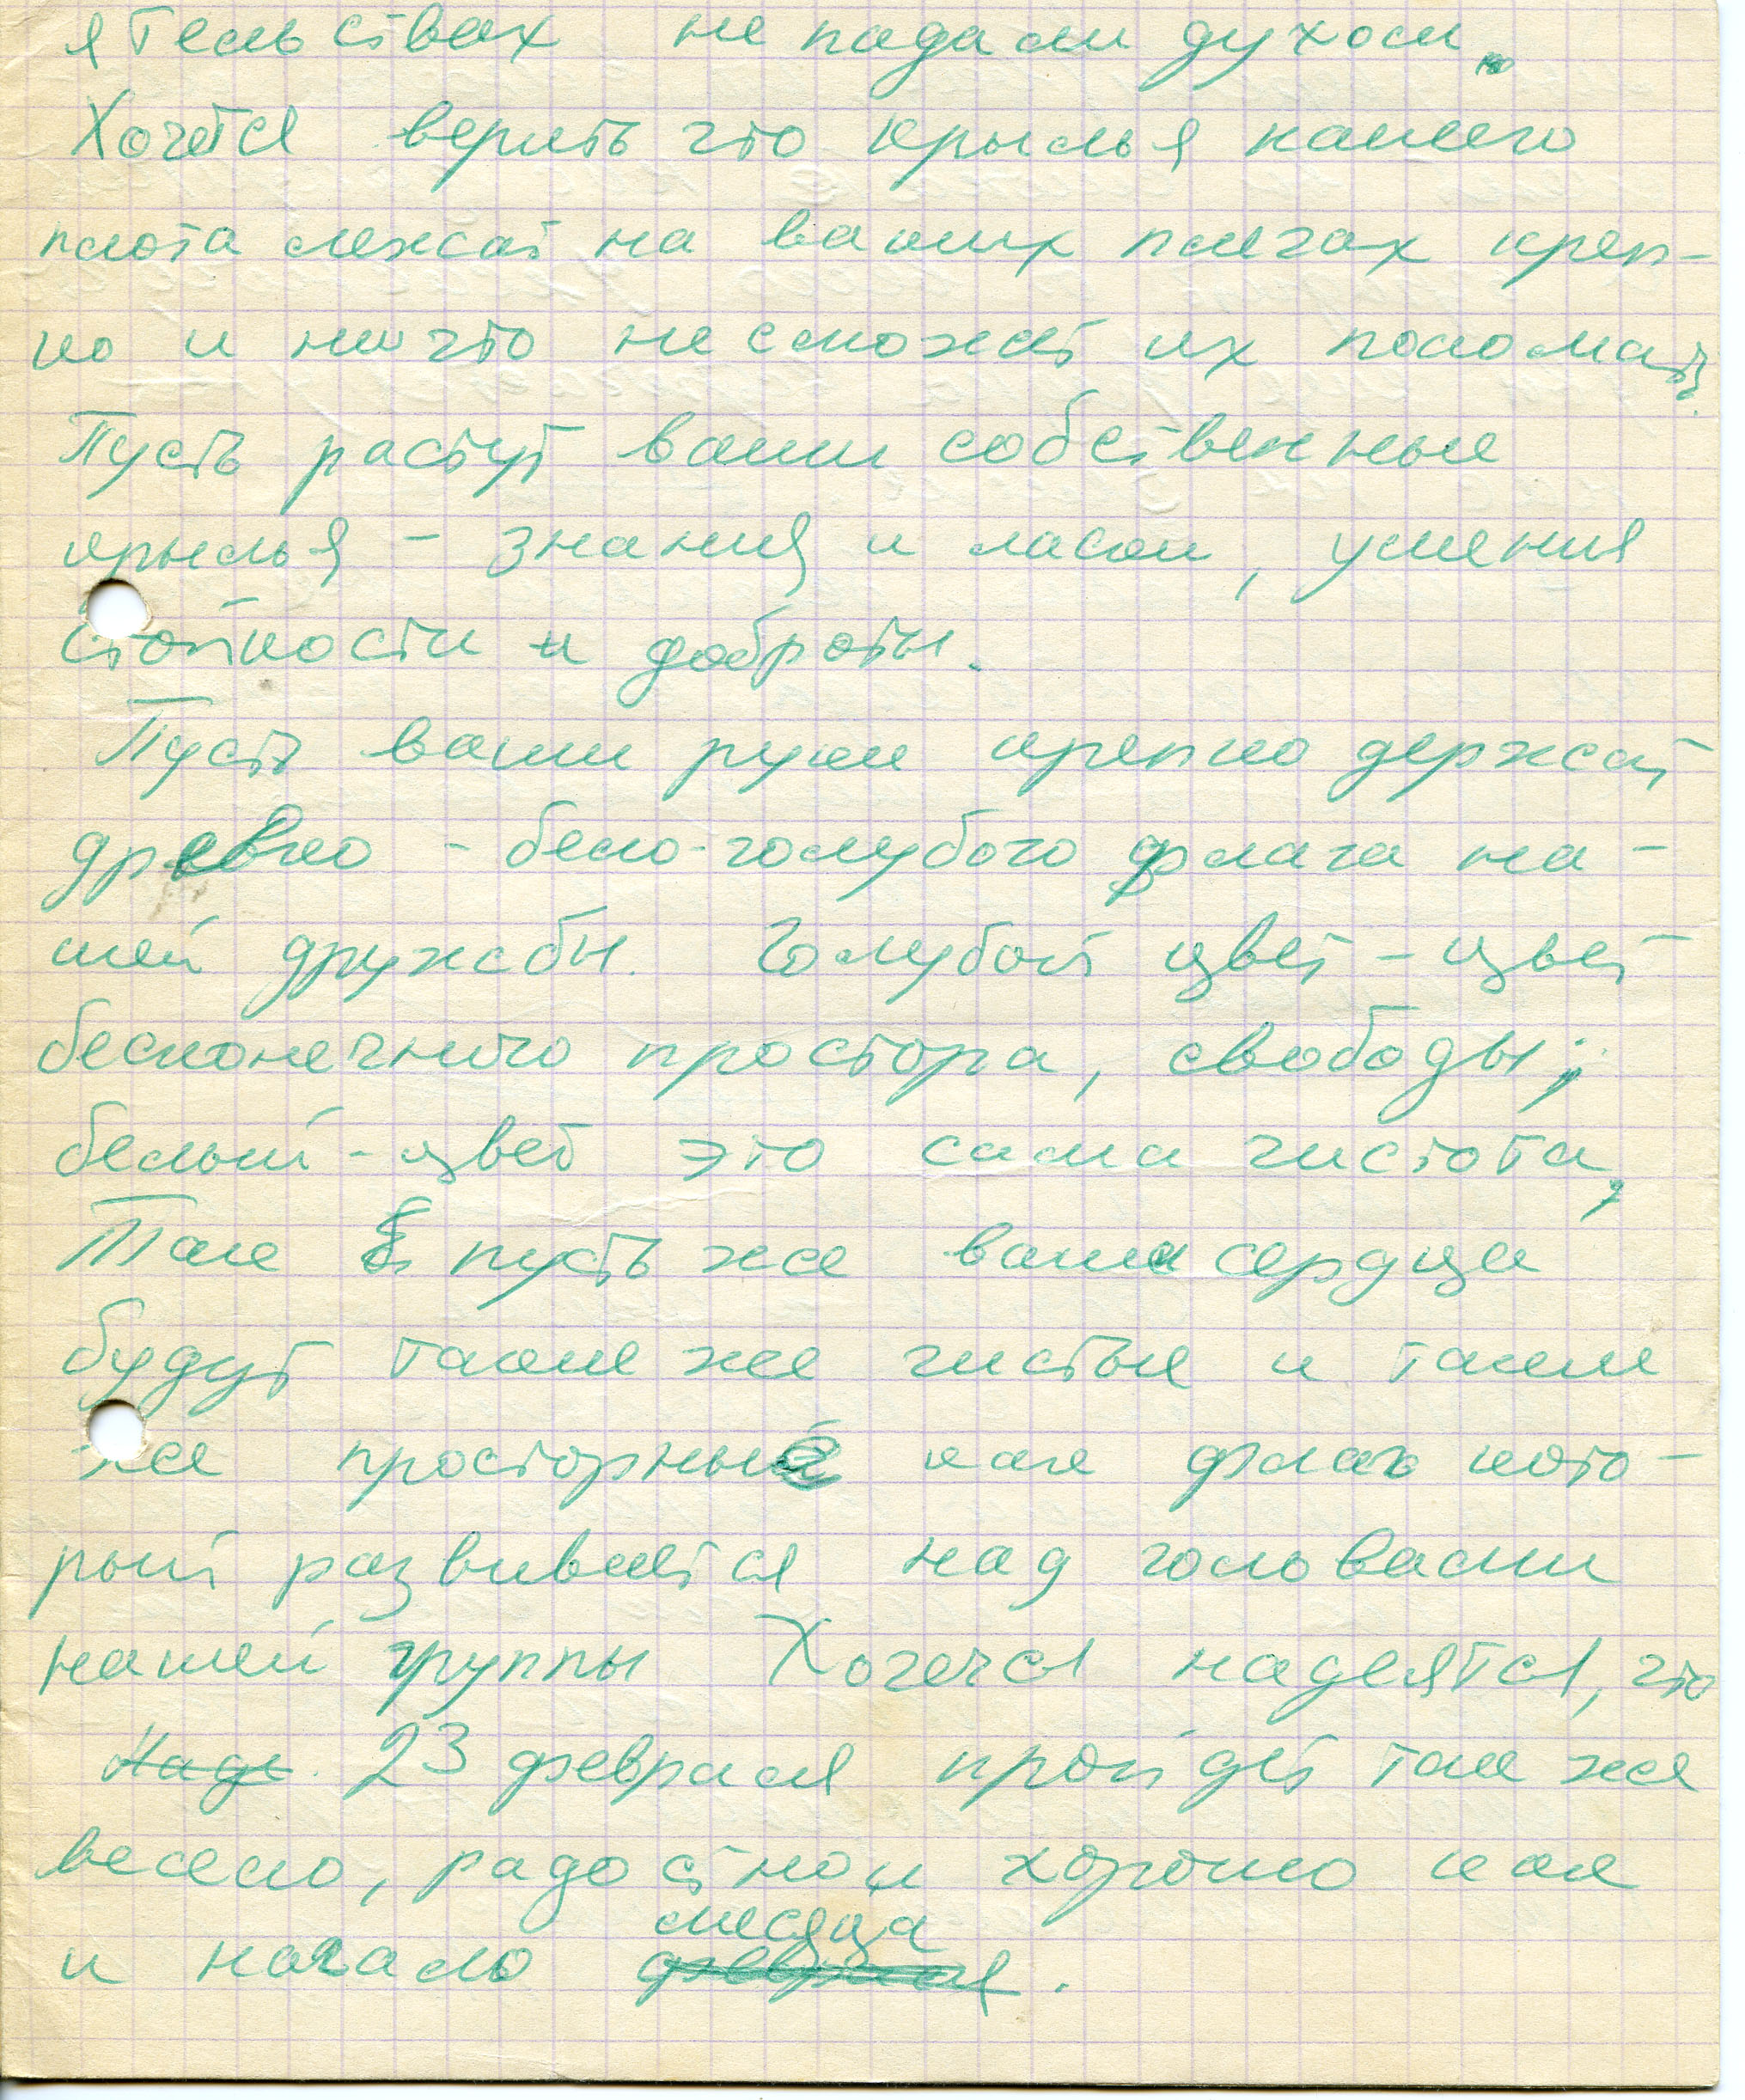 ятельствах не падали духом.
Хочется верить что крылья нашего
плота лежат на ваших плечах креп-
ко и ничто не сможет их поломать.
Пусть растут ваши собственные
крылья - знания и ласки, умения
стойкости и доброты.
Пусть ваши руки крепко держат
древко - бело-голубого флага на-
шей дружбы. Голубой цвет - цвет
бесконечного простора, свободы;
белый - цвет это сама чистота,
Так пусть же ваши сердца
будут такие же чистые и такие
же просторные как флаг кото-
рый развивается над головами
нашей группы Хочечся надеятся, что
Наде. 23 февраля пройдет так же
весело, радостно и хорошо как
месяца
и начало февраля.